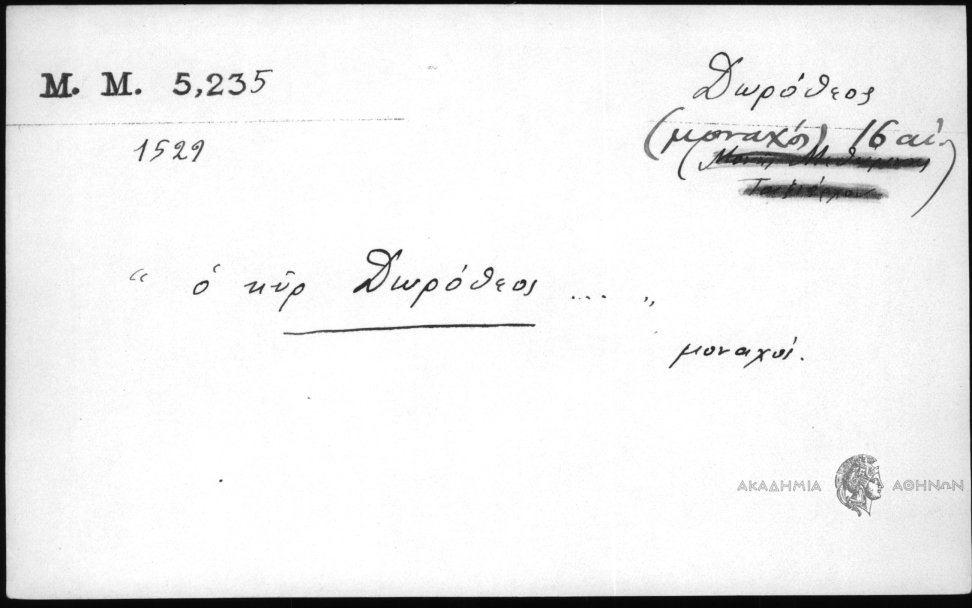 M. M. 5,235
1529
Δωρόθεος
(μοναχός) 16 αἰ.
" ὁ κῦρ Δωρόθεος ... "
μοναχοί.
ΑΚΑΔΗΜΙΑ ΑΘΗΝΩΝ